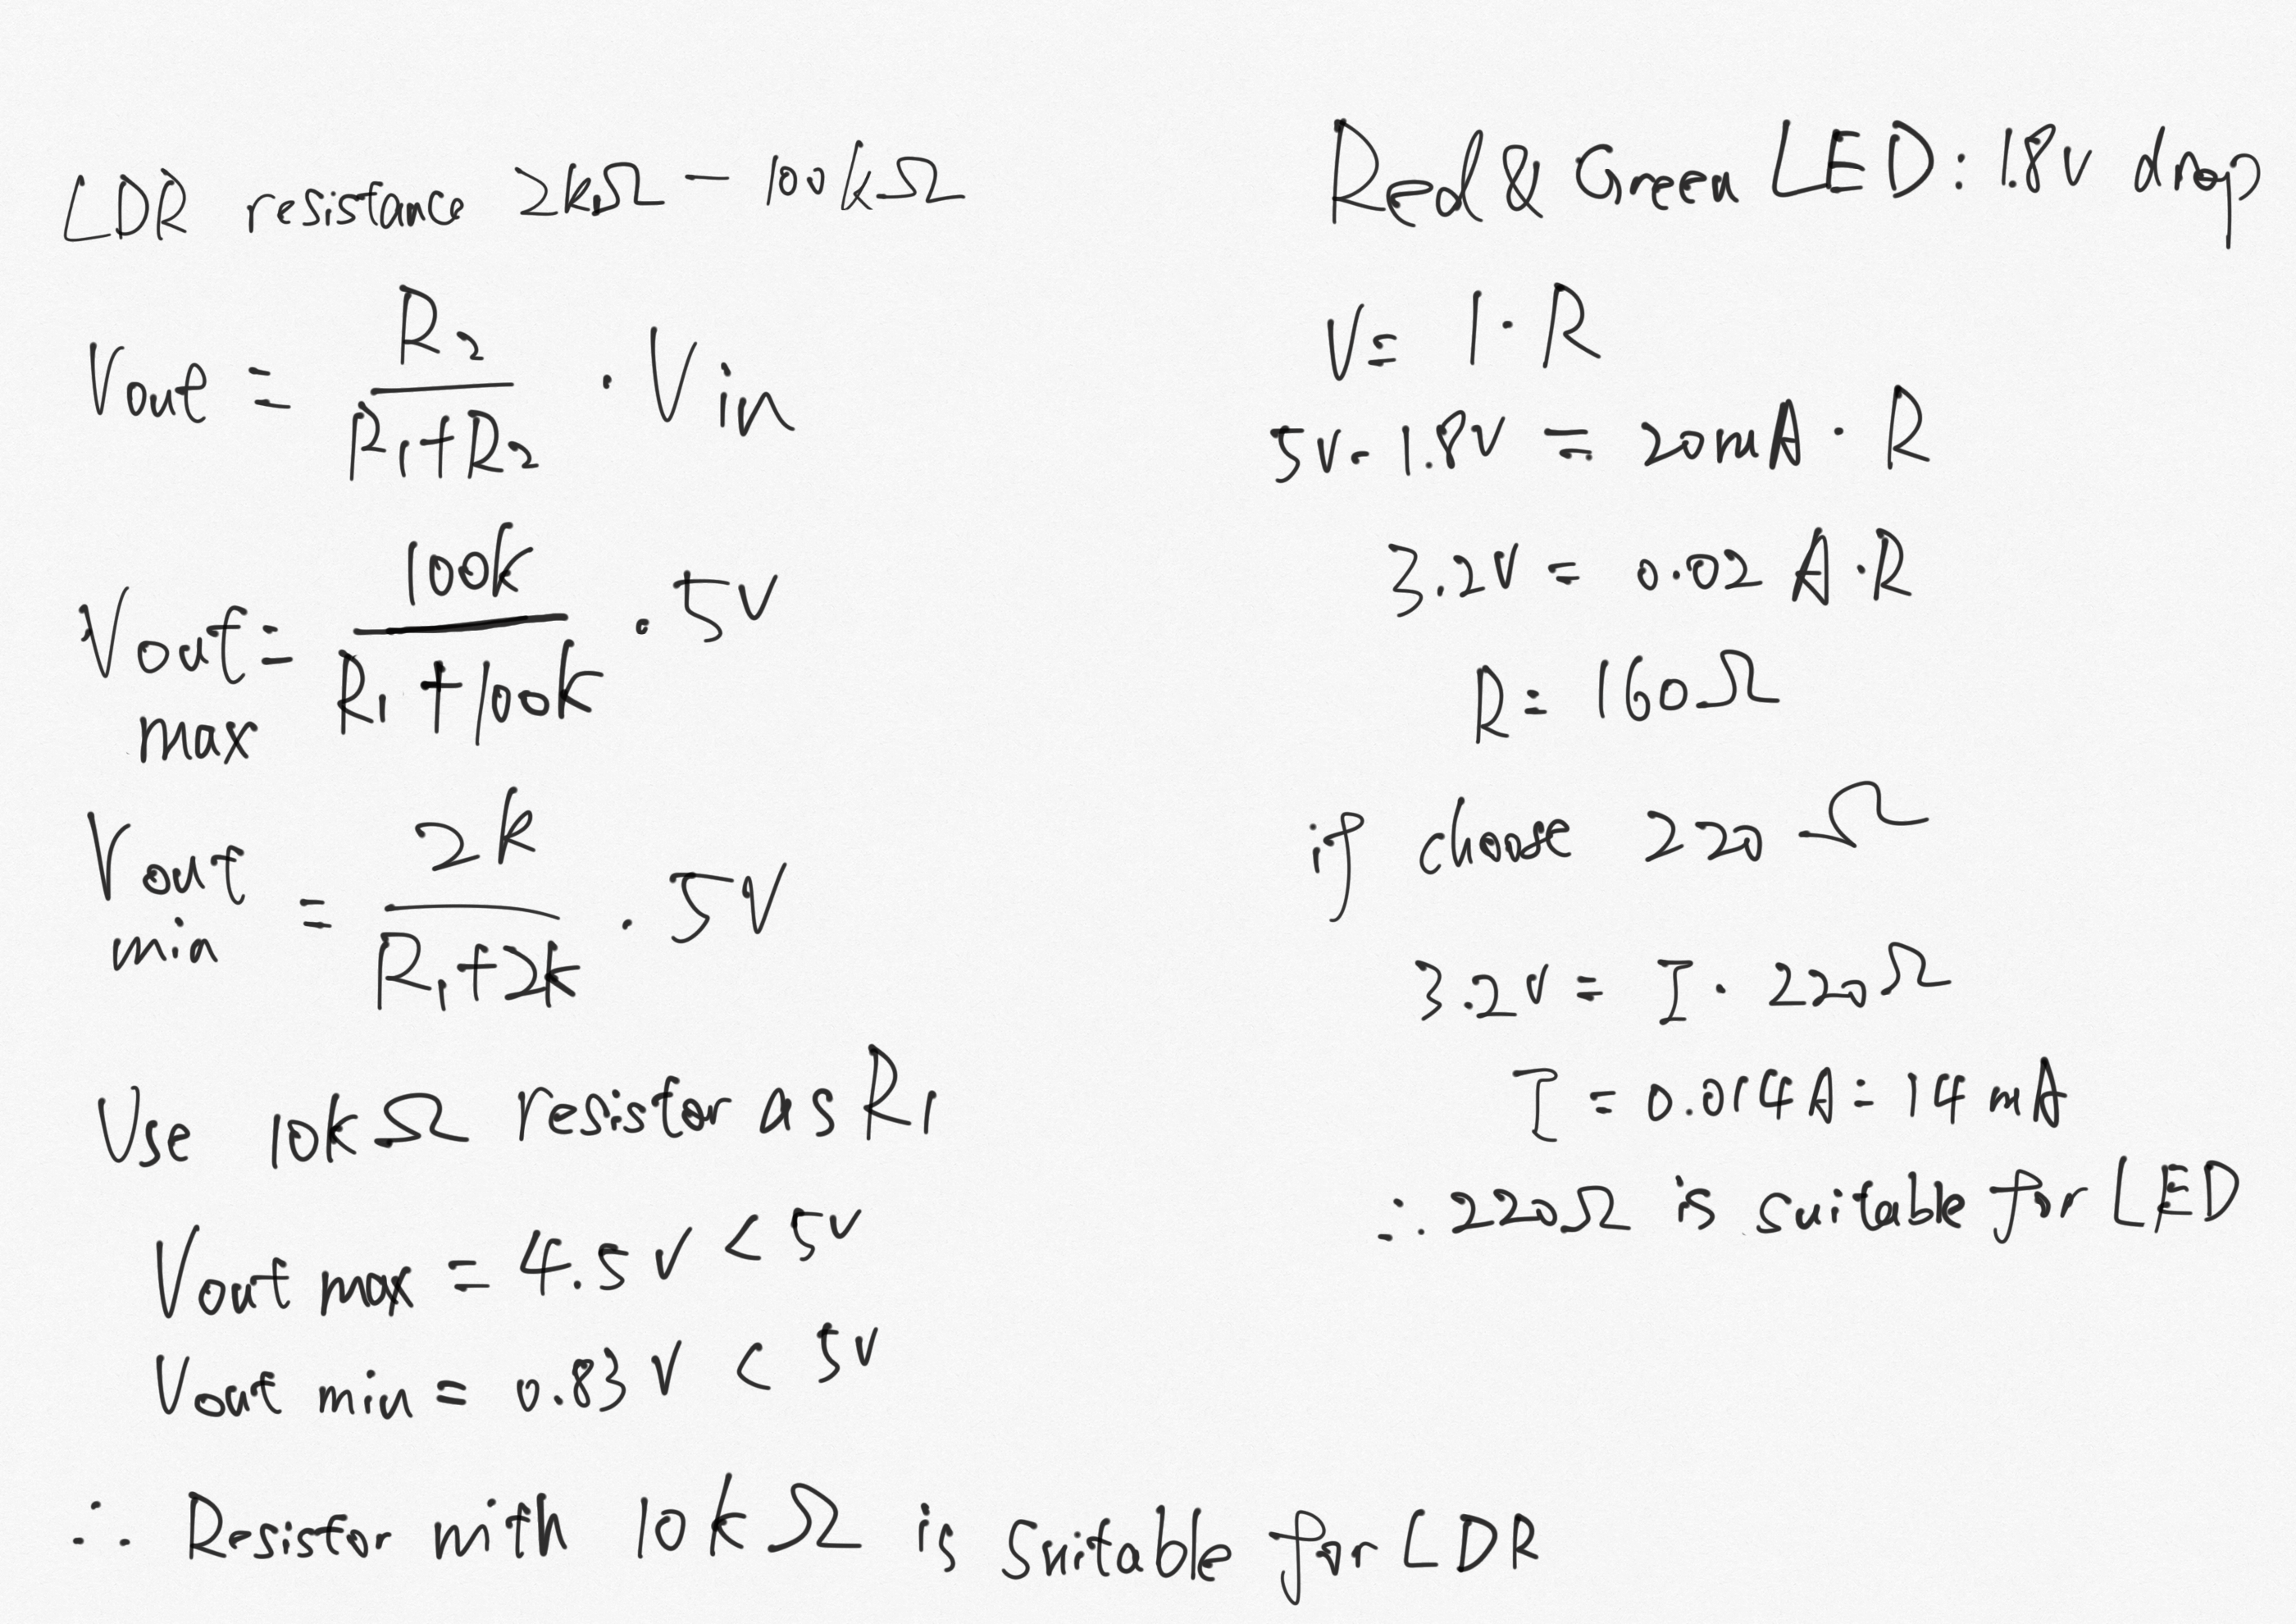 LDR resistance 2kΩ - 100kΩ
Vout = R2 / R1+R2 · Vin
Vout max = 100k / R1+100k · 5V
Vout min = 2k / R1+2k · 5V
Use 10kΩ resistor as R1
Vout max = 4.5V < 5V
Vout min = 0.83V < 5V
∴ Resistor with 10kΩ is suitable for LDR
Red & Green LED: 1.8V drop
V = I · R
5V - 1.8V = 20mA · R
3.2V = 0.02A · R
R = 160Ω
if choose 220Ω
3.2V = I · 220Ω
I = 0.014A = 14mA
∴ 220Ω is suitable for LED